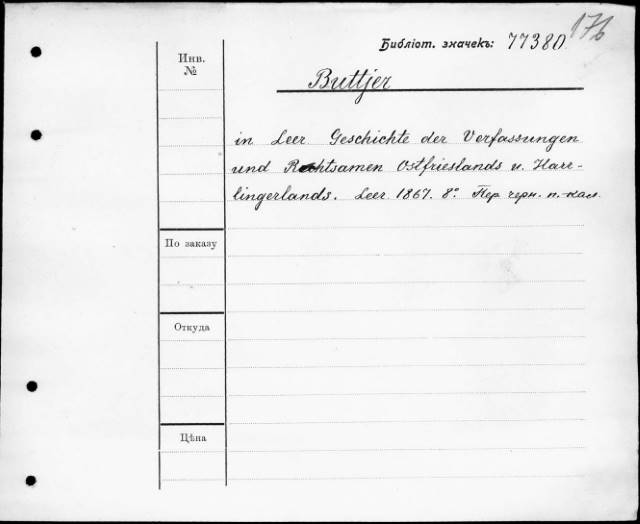 176
Библіот. значекъ: 77380
Инв.
№
Buttjer
in Leer. Geschichte der Verfassungen
und Rechtsamen Ostfrieslands u. Harr-
lingerlands. Leer. 1867. 8°. Пер. черн. п.-кал.
По заказу
Откуда
Цѣна